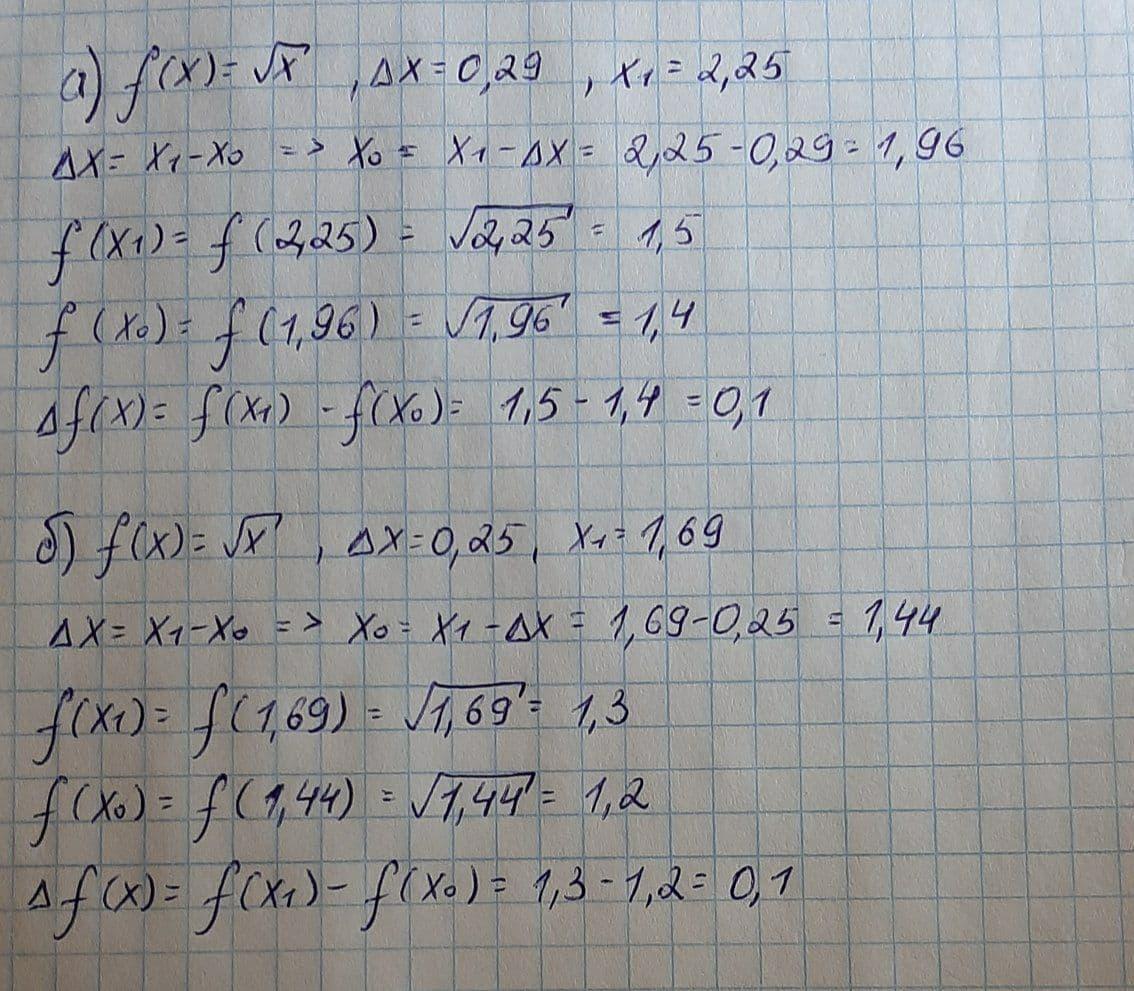 а) f(x) = √x , Δx = 0,29 , x₁ = 2,25
Δx = x₁ - x₀ => x₀ = x₁ - Δx = 2,25 - 0,29 = 1,96
f(x₁) = f(2,25) = √2,25 = 1,5
f(x₀) = f(1,96) = √1,96 = 1,4
Δf(x) = f(x₁) - f(x₀) = 1,5 - 1,4 = 0,1
б) f(x) = √x , Δx = 0,25, x₁ = 1,69
Δx = x₁ - x₀ => x₀ = x₁ - Δx = 1,69 - 0,25 = 1,44
f(x₁) = f(1,69) = √1,69 = 1,3
f(x₀) = f(1,44) = √1,44 = 1,2
Δf(x) = f(x₁) - f(x₀) = 1,3 - 1,2 = 0,1